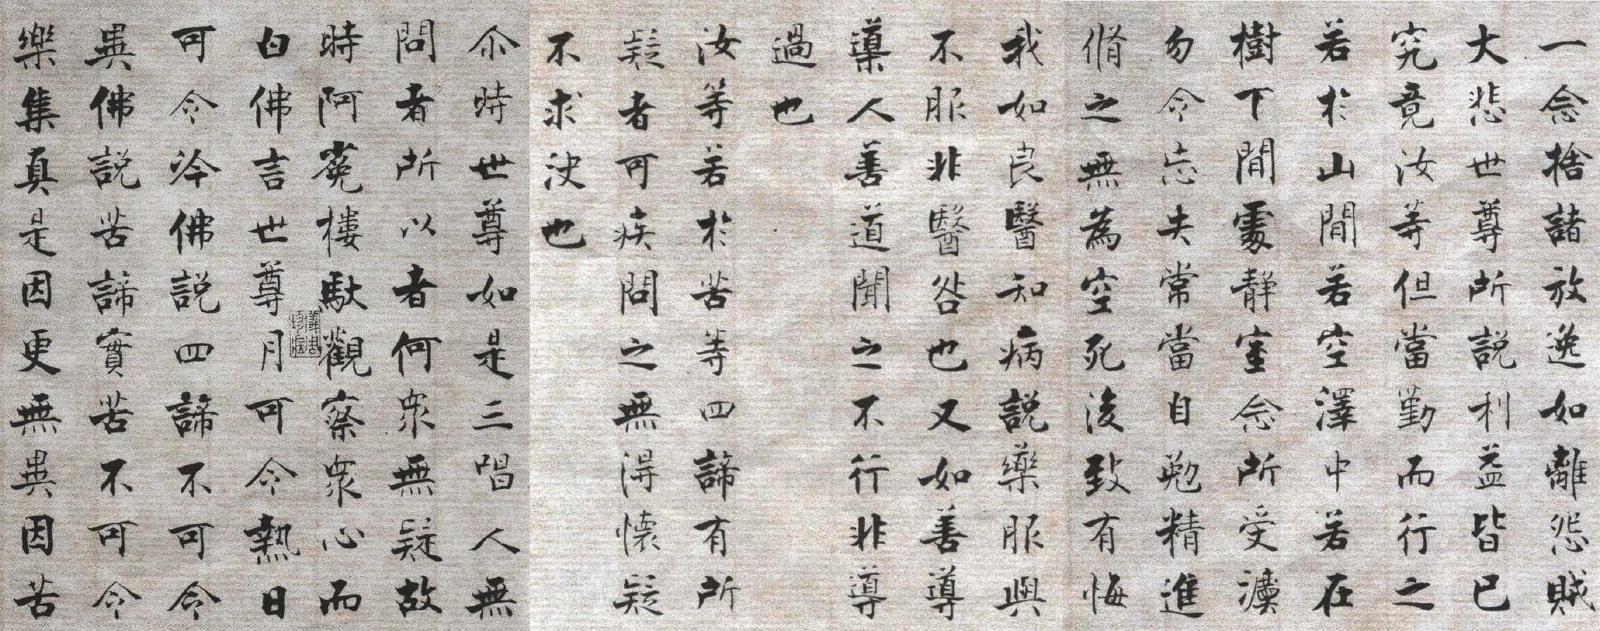 一念捨諸放逸如離怨賊
大悲世尊所説利益皆已
究竟汝等但當勤而行之
若於山間若空澤中若在
樹下閒處靜室念所受灋
勿令忘失常當自勉精進
脩之無為空死後致有悔
我如良醫知病説藥服與
不服非醫咎也又如善導
導人善道聞之不行非導
過也
汝等若於苦等四諦有所
疑者可疾問之無得懷疑
不求決也
尒時世尊如是三唱人無
問者所以者何衆無疑故
時阿㝹樓馱觀察衆心而
白佛言世尊月可令熱日
可令冷佛説四諦不可令
異佛説苦諦實苦不可令
樂集真是因更無異因苦